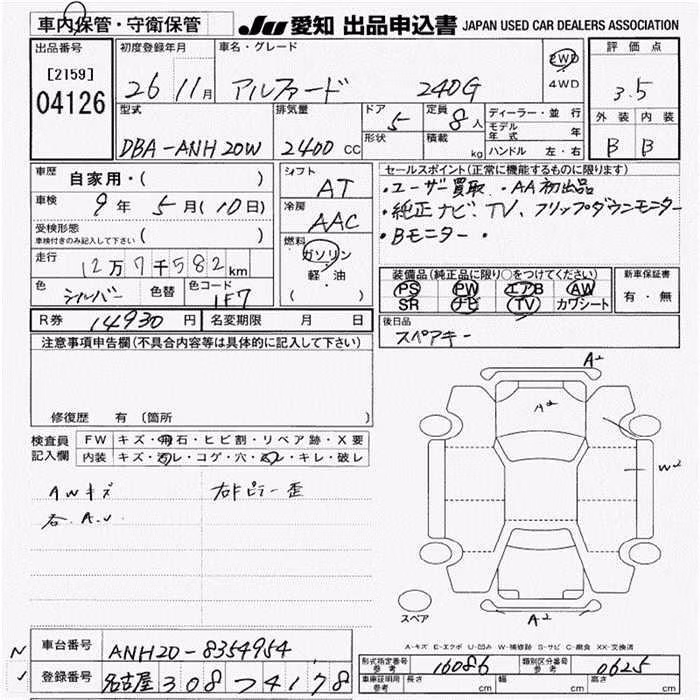 車内保管・守衛保管
JU 愛知 出品申込書 JAPAN USED CAR DEALERS ASSOCIATION
出品番号
[2159]
04126
初度登録年月
26 11月
車名・グレード
アルファード 240G
2WD
4WD
評価点
3.5
外装 内装
B B
型式
DBA-ANH20W
排気量
2400 CC
ドア
5
形状
定員
8人
積載
kg
ディーラー・並行
モデル年式 年
ハンドル 左・右
車歴
自家用・( )
車検
9年 5月(10日)
受検形態
車検付きのみ記入して下さい ( )
走行
12万7千582km
色
シルバー
色替
色コード
1F7
シフト
AT
冷房
AAC
燃料
ガソリン
軽・油
( )
セールスポイント(正常に機能するものに限ります)
・ユーザー買取 ・AA初出品
・純正ナビ、TV、フリップダウンモニター
・Bモニター ・
装備品(純正品に限り○をつけてください)
PS PW エアB AW
SR ナビ TV カワシート
新車保証書
有・無
後日品
スペアキー
R券 14930円
名変期限 月 日
注意事項申告欄(不具合内容等は具体的に記入して下さい)
修復歴 有 〔箇所 〕
検査員
記入欄
FW キズ・飛石・ヒビ割・リペア跡・X要
内装 キズ・汚レ・コゲ・穴・スレ・キレ・破レ
AWキズ
右. A.U
右ドピラー歪
A2
A2
W2
A2
スペア
A-キズ E-エクボ U-凹み W-補修跡 S-サビ C-腐食 XX-交換済
車台番号 ANH20-8354954
登録番号 名古屋 308 ソ 4178
型式指定番号
参考
16086
類別区分番号
参考
0625
車庫証明用
参考
長さ cm 幅 cm 高さ cm